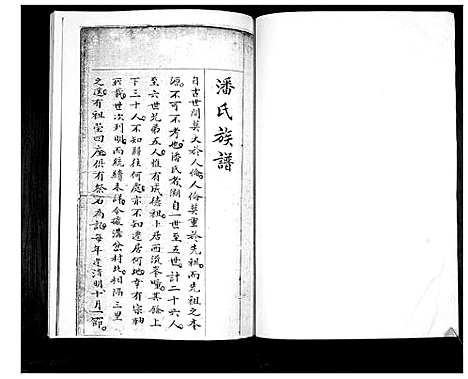 潘氏族譜
自古世間莫大於人倫人倫莫重於先祖而先祖之本
源不可不考也潘氏敖湖自一世至五世計二十六人
至六世兄弟五人惟有成德祖卜居西浜峯嘴其餘上
下三十人不知轉往何處亦不知遷居何地幸有宗軸
所載世次列明而統緒未謬今後溝岔村北相隔三里
之遠有祖塋四座俱有祭石為記每年逢清明十月一節